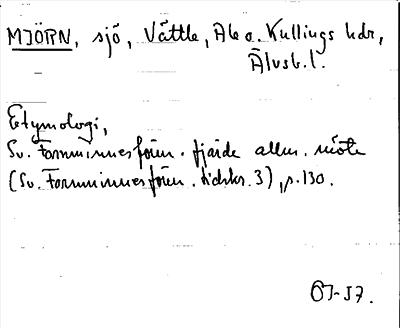 MJÖRN, sjö, Vättle, Ale o. Kullings hdr,
Älvsb. l.
Etymologi,
Sv. Fornminnesfören. fjärde allm. möte
(Sv. Fornminnesfören. tidskr. 3), p. 130.
OJ-57.